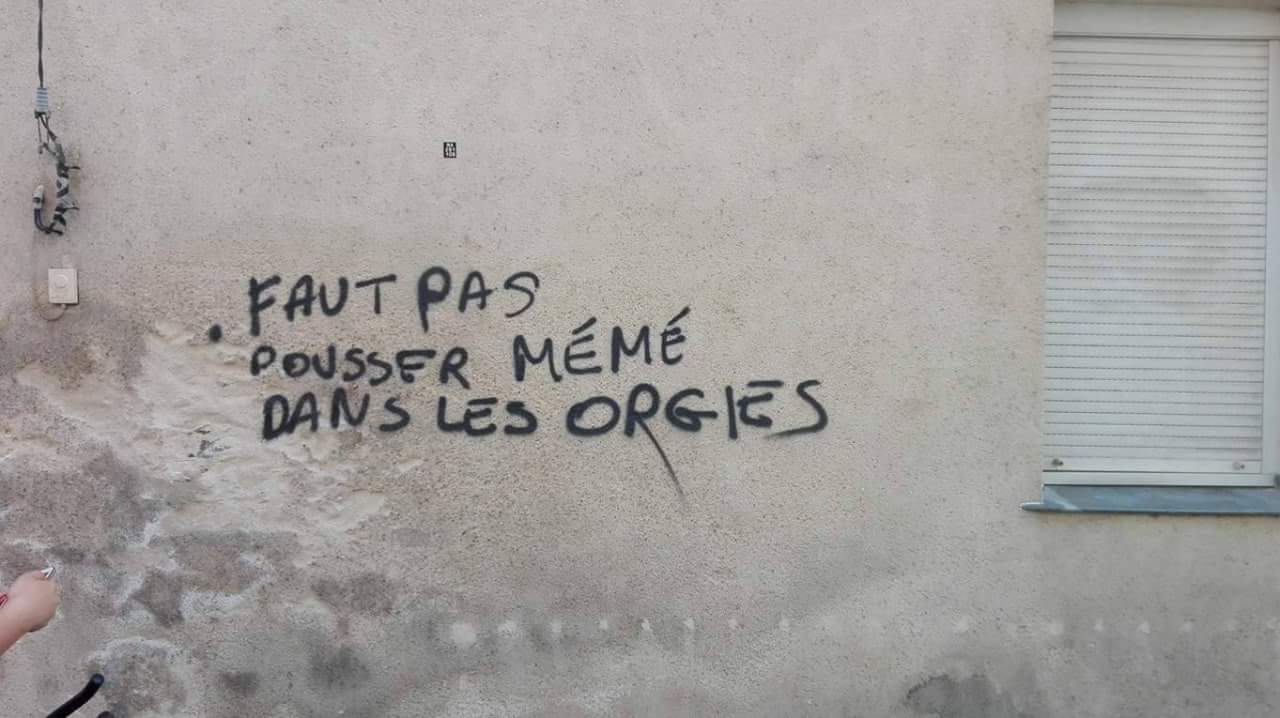 FAUT PAS
POUSSER MÉMÉ
DANS LES ORGIES